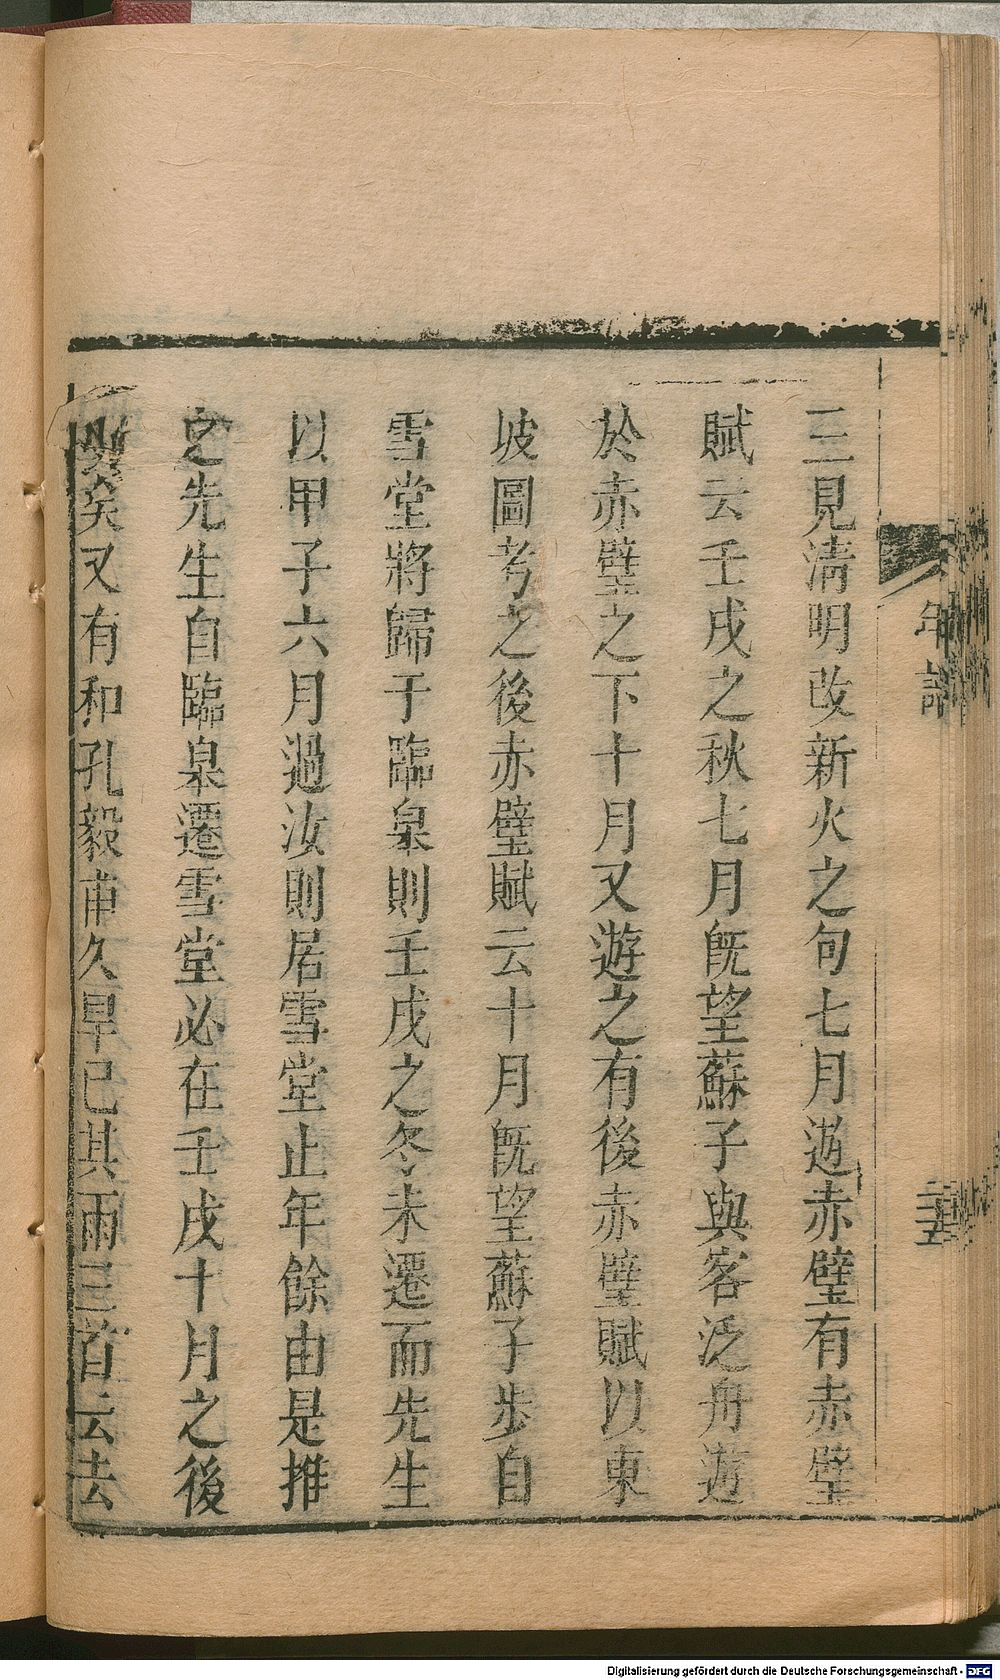 三見清明改新火之句七月遊赤壁有赤壁
賦云壬戌之秋七月既望蘇子與客泛舟遊
於赤壁之下十月又遊之有後赤壁賦以東
坡圖考之後赤壁賦云十月既望蘇子步自
雪堂將歸于臨皋則壬戌之冬未遷而先生
以甲子六月過汝則居雪堂止年餘由是推
之先生自臨皋遷雪堂必在壬戌十月之後
矣又有和孔毅甫久旱已其雨三首云去
年譜
二十五
Digitalisierung gefördert durch die Deutsche Forschungsgemeinschaft - DFG